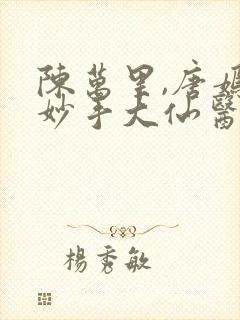 陳萬里,唐嫣
妙手大仙醫
楊秀敏